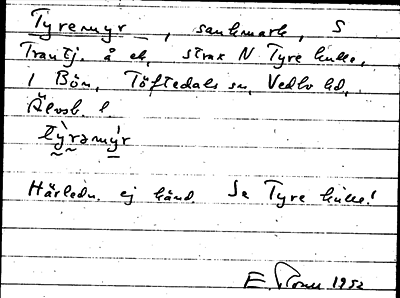 Tyremyr, sankmark, S
Trantj. å ek. strax N Tyre kulle,
1 Bön, Töftedals sn, Vedbo hd,
Älvsb. l.
tỳrəmy̆r
Härledn. ej känd. Se Tyre kulle!
E. 1952